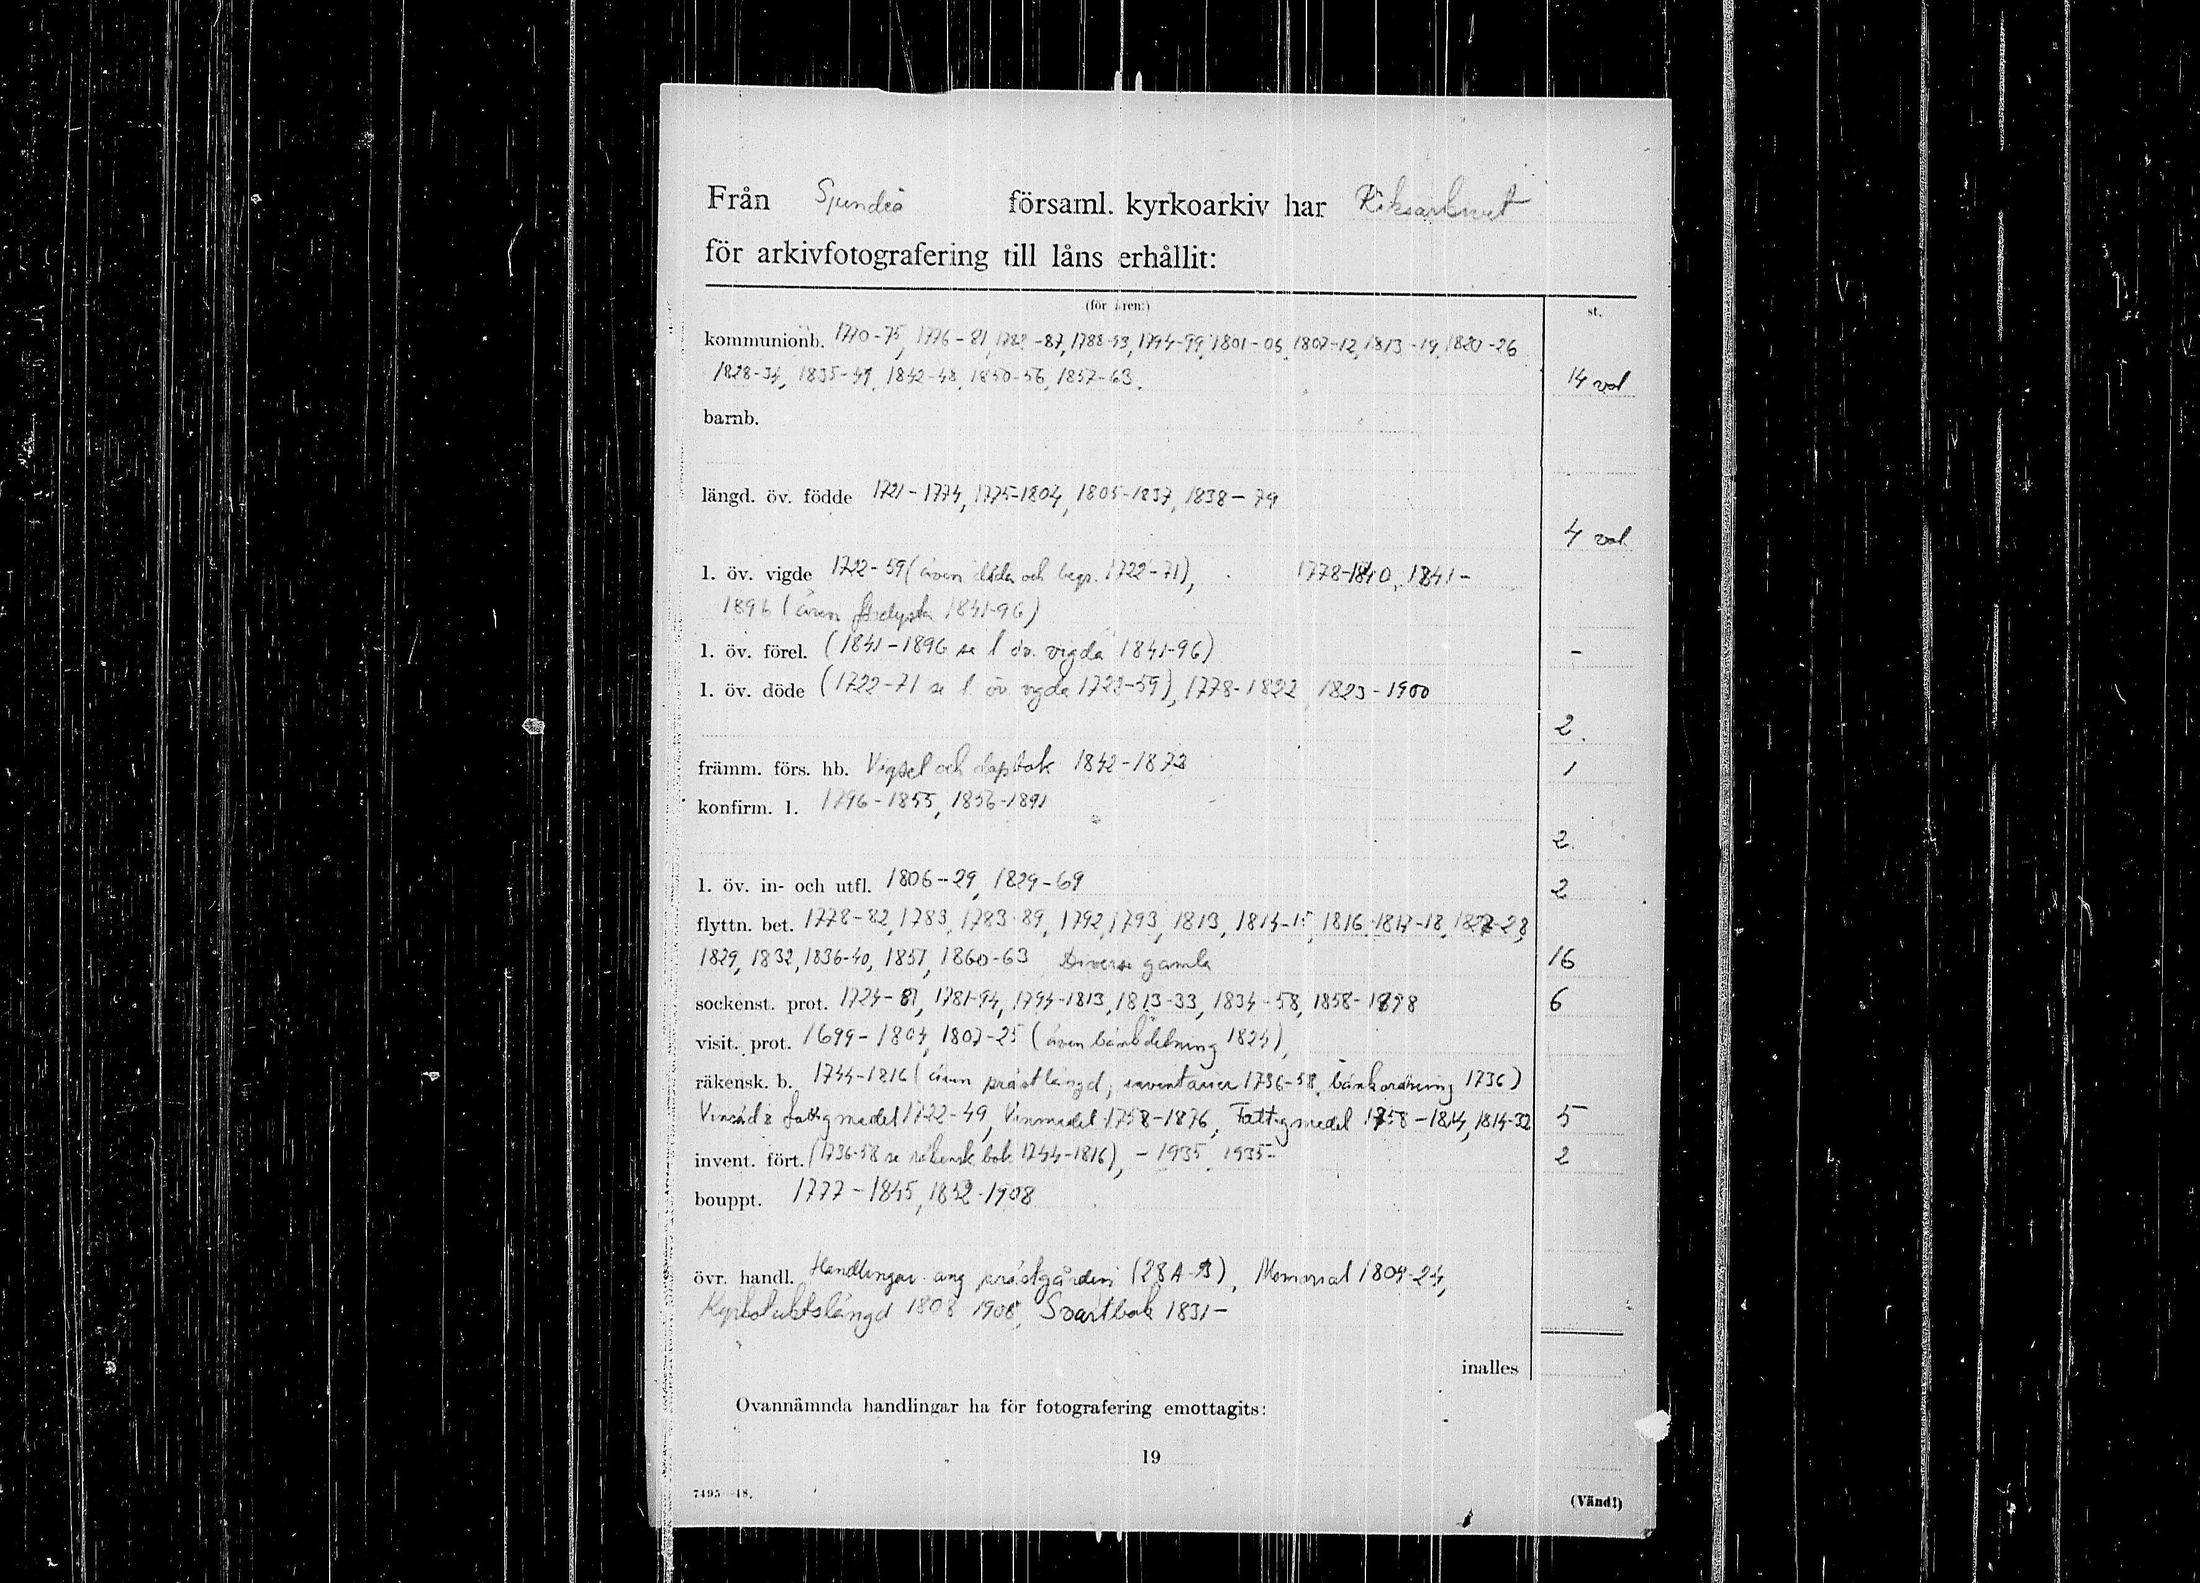 Från Sjundeå församl. kyrkoarkiv har Riksarkivet
för arkivfotografering till låns erhållit:
(för åren:) st.
kommunionb. 1770-75, 1776-81, 1782-87, 1788-93, 1794-99, 1801-06, 1807-12, 1813-19, 1820-26
1828-34, 1835-41, 1842-48, 1850-56, 1857-63. 14 vol
barnb.
längd. öv. födde 1721-1774, 1775-1804, 1805-1837, 1838-79
4 vol
l. öv. vigde 1722-59 (även döda och begr. 1722-71), 1778-1840, 1841-
1896 (även förelysta 1841-96)
l. öv. förel. (1841-1896 se l öv. vigda 1841-96) -
l. öv. döde (1722-71 se l. öv vigda 1722-59), 1778-1822, 1823-1900
2.
främm. förs. hb. Vigsel och dopbok 1842-1873 1
konfirm. l. 1796-1855, 1856-1891
2.
l. öv. in- och utfl. 1806-29, 1829-69 2
flyttn. bet. 1778-82, 1783, 1783-89, 1792, 1793, 1813, 1814-15, 1816, 1817-18, 1827-28,
1829, 1832, 1836-40, 1857, 1860-63 Diverse gamla 16
sockenst. prot. 1724-81, 1781-94, 1794-1813, 1813-33, 1834-58, 1858-1898 6
visit. prot. 1699-1804, 1807-25 (även bänkdelning 1824),
räkensk. b. 1744-1816 (även prästlängd, inventarier 1736-58, bänkordning 1736)
fattigmedel 1722-49, Vinmedel 1758-1876, Fattigmedel 1758-1814, 1814-32 5
invent. fört. (1736-58 se räkensk bok 1744-1816), -1935, 1935- 2
bouppt. 1777-1845, 1852-1908
övr. handl. Handlingar ang prästgården (28 A-B), Memorial 1809-24,
Kyrkotuktslängd 1808 1908, Svartbok 1831-
inalles
Ovannämnda handlingar ha för fotografering emottagits:
19
7495—48.
(Vänd!)